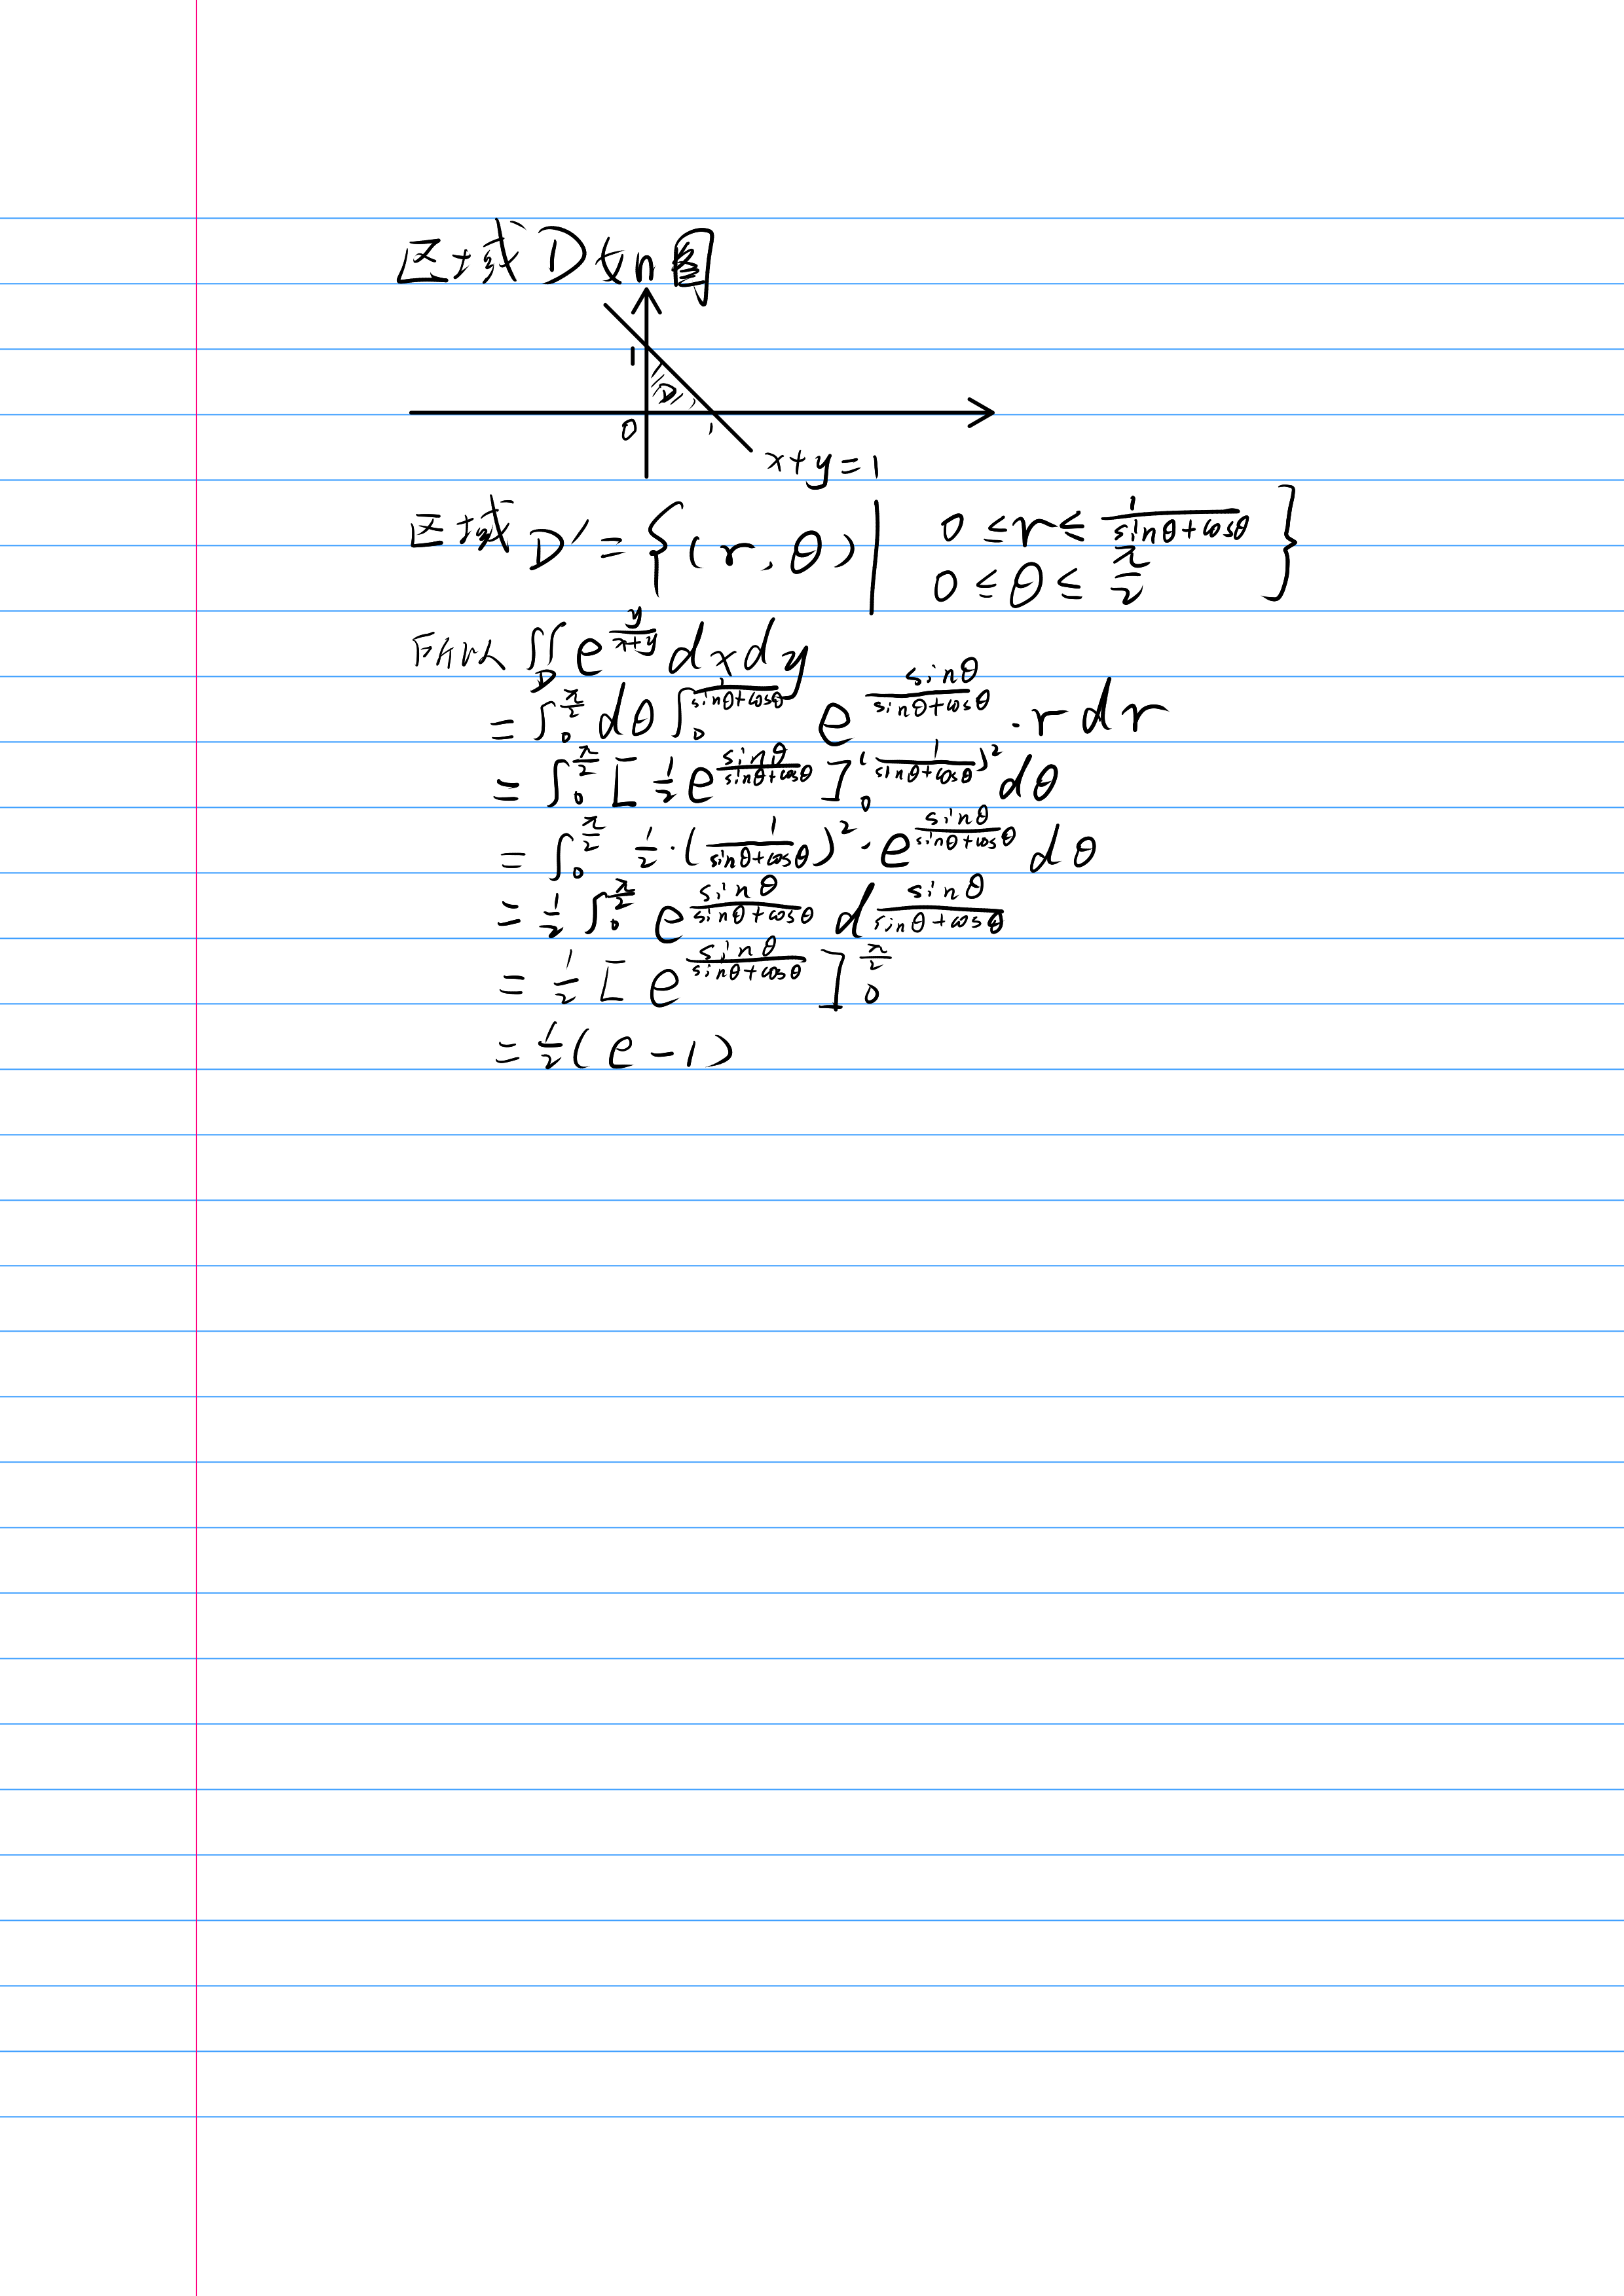 区域D如图
1
D
0 1
x+y=1
区域D'={(r,θ)| 0≤r≤\frac{1}{sinθ+cosθ} 0≤θ≤\frac{π}{2}}
所以 ∬_D e^{\frac{y}{x+y}} dxdy
=∫_0^{\frac{π}{2}} dθ ∫_0^{\frac{1}{sinθ+cosθ}} e^{\frac{sinθ}{sinθ+cosθ}}·rdr
=∫_0^{\frac{π}{2}} [\frac{1}{2}e^{\frac{sinθ}{sinθ+cosθ}}]_0^{(\frac{1}{sinθ+cosθ})^2} dθ
=∫_0^{\frac{π}{2}} \frac{1}{2}·(\frac{1}{sinθ+cosθ})^2·e^{\frac{sinθ}{sinθ+cosθ}} dθ
=\frac{1}{2}∫_0^{\frac{π}{2}} e^{\frac{sinθ}{sinθ+cosθ}} d\frac{sinθ}{sinθ+cosθ}
=\frac{1}{2}[e^{\frac{sinθ}{sinθ+cosθ}}]_0^{\frac{π}{2}}
=\frac{1}{2}(e-1)